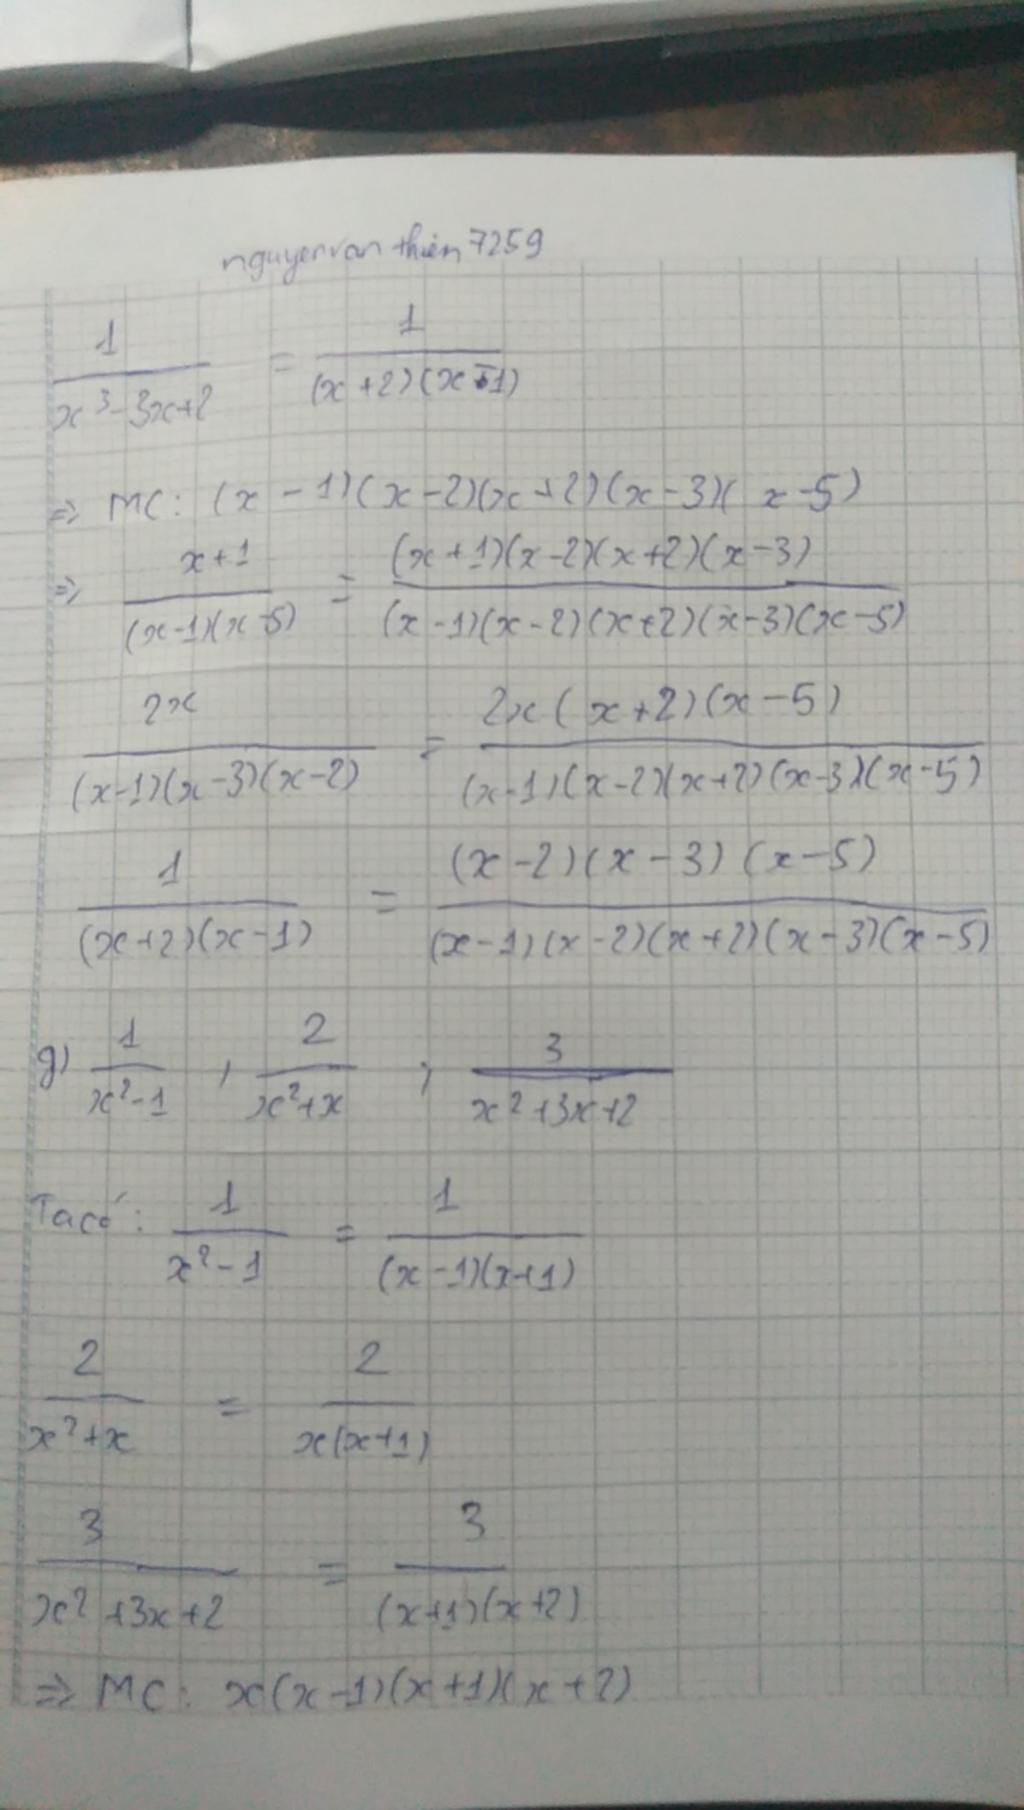 nguyenvan thiên 7259
1/(x³-3x+2) = 1/((x+2)(x-1))
=> MC: (x-1)(x-2)(x+2)(x-3)(x-5)
=> (x+1)/((x-1)(x-5)) = ((x+1)(x-2)(x+2)(x-3))/((x-1)(x-2)(x+2)(x-3)(x-5))
2x/((x-1)(x-3)(x-2)) = (2x(x+2)(x-5))/((x-1)(x-2)(x+2)(x-3)(x-5))
1/((x+2)(x-1)) = ((x-2)(x-3)(x-5))/((x-1)(x-2)(x+2)(x-3)(x-5))
g) 1/(x²-1) , 2/(x²+x) ; 3/(x²+3x+2)
Ta có: 1/(x²-1) = 1/((x-1)(x+1))
2/(x²+x) = 2/(x(x+1))
3/(x²+3x+2) = 3/((x+1)(x+2))
=> MC: x(x-1)(x+1)(x+2)